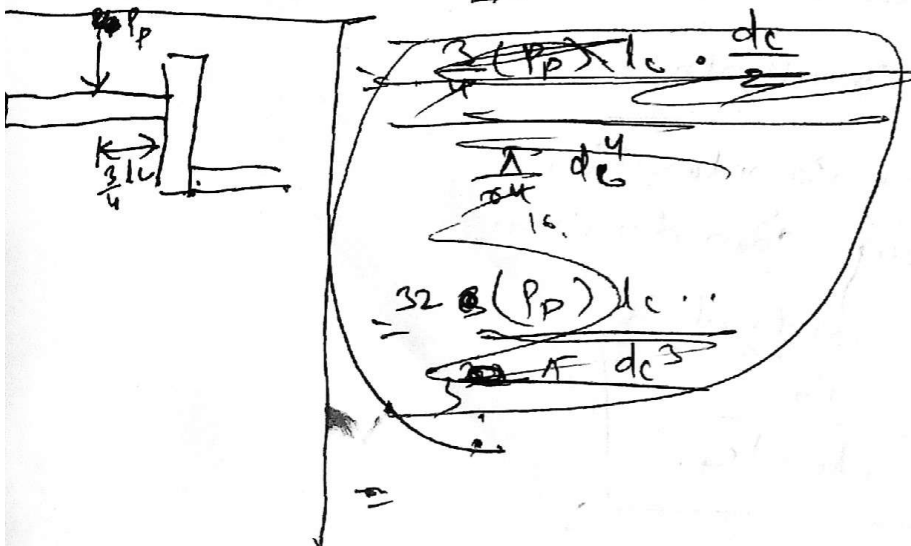 P_p
3/4 lc
3/4 (P_p) lc . dc/2
π/64 dc^4
16.
= 32 (P_p) lc ..
π dc^3
=